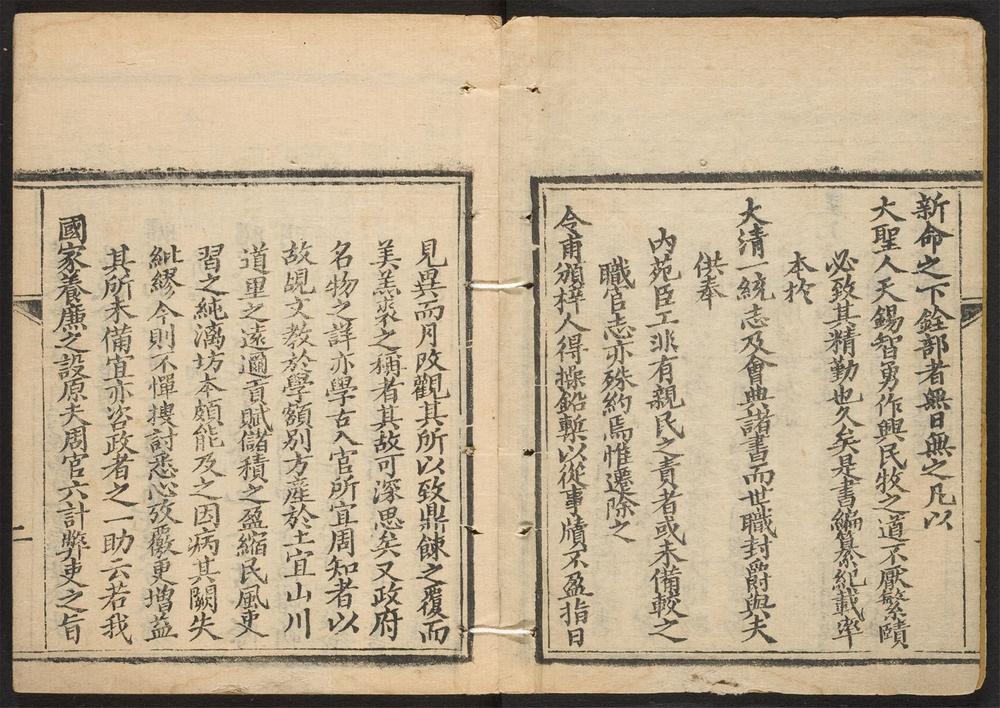 新命之下銓部者無日無之凡以
大聖人天錫智勇作興民牧之道不厭繁賾
必致其精勤也久矣是書編纂紀載率
本於
大清一統志及會典諸書而世職封爵與夫
供奉
內苑臣工非有親民之責者或未備較之
職官志亦殊約焉惟遷除之
令甫頒梓人得操鉛槧以從事牘不盈指日
見異而月改觀其所以致鼎餗之覆而
美羔裘之稱者其故可深思矣又政府
名物之詳亦學古入官所宜周知者以
故覘文教於學額別方產於土宜山川
道里之遠邇貢賦儲積之盈縮民風吏
習之純漓坊本頗能及之因病其闕失
紕繆今則不憚搜討悉心攷覈更增益
其所未備宜亦咨政者之一助云若我
國家養廉之設原夫周官六計弊吏之旨
二